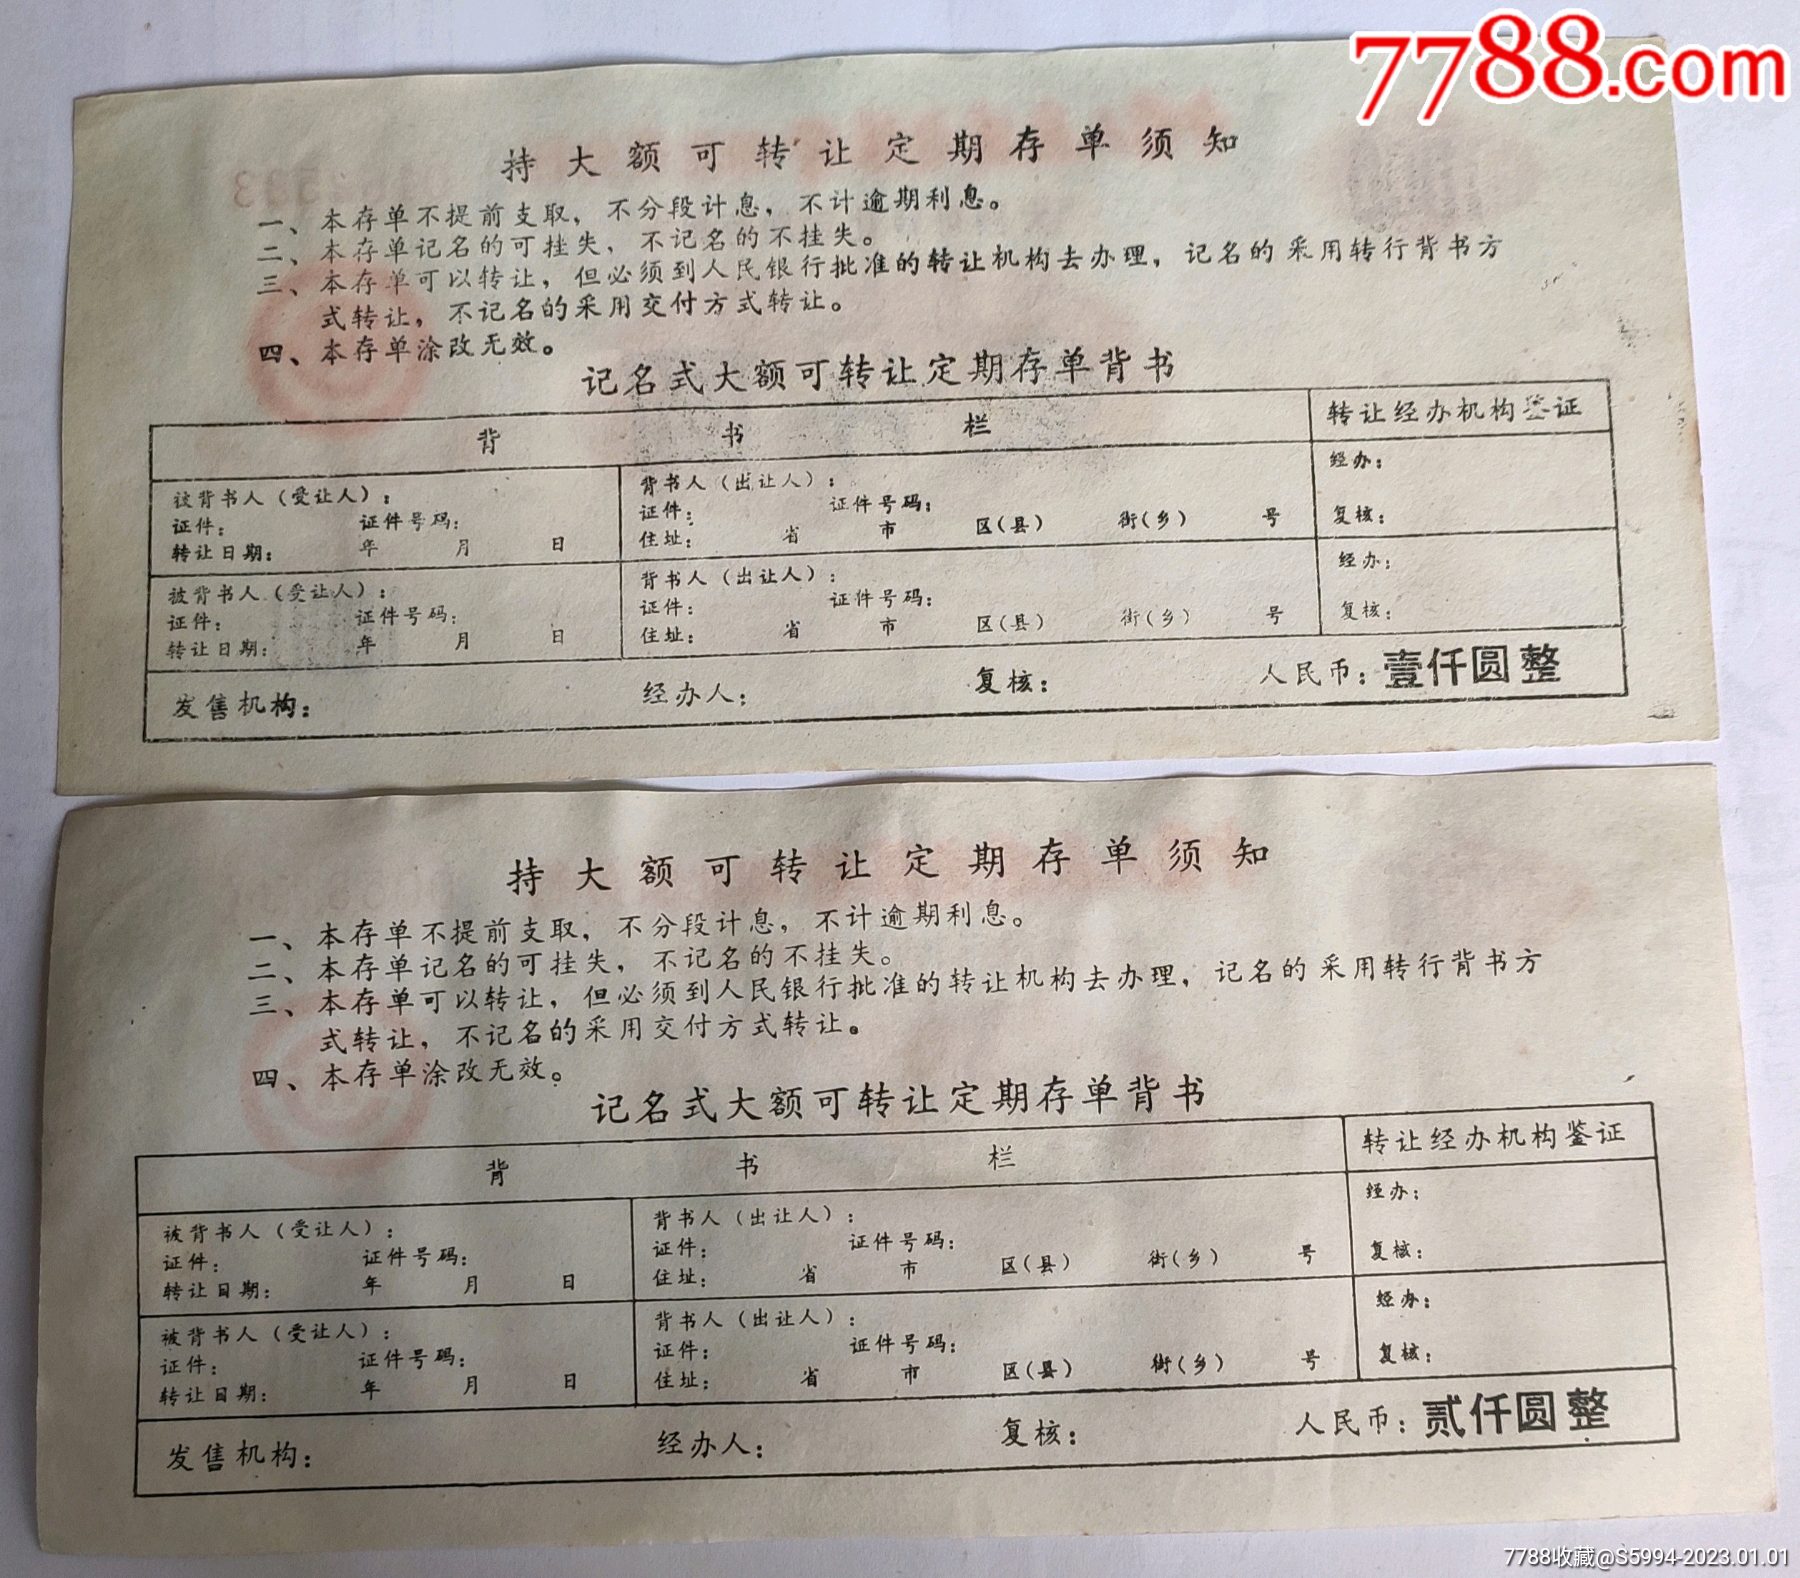 7788.com
持大额可转让定期存单须知
一、本存单不提前支取，不分段计息，不计逾期利息。
二、本存单记名的可挂失，不记名的不挂失。
三、本存单可以转让，但必须到人民银行批准的转让机构去办理，记名的采用转行背书方
式转让，不记名的采用交付方式转让。
四、本存单涂改无效。
记名式大额可转让定期存单背书
背 书 栏 转让经办机构鉴证
被背书人（受让人）： 背书人（出让人）： 经办：
证件： 证件号码： 证件： 证件号码：
转让日期： 年 月 日 住址： 省 市 区（县） 街（乡） 号 复核：
被背书人（受让人）： 背书人（出让人）： 经办：
证件： 证件号码： 证件： 证件号码：
转让日期： 年 月 日 住址： 省 市 区（县） 街（乡） 号 复核：
发售机构： 经办人： 复核： 人民币：壹仟圆整
持大额可转让定期存单须知
一、本存单不提前支取，不分段计息，不计逾期利息。
二、本存单记名的可挂失，不记名的不挂失。
三、本存单可以转让，但必须到人民银行批准的转让机构去办理，记名的采用转行背书方
式转让，不记名的采用交付方式转让。
四、本存单涂改无效。
记名式大额可转让定期存单背书
背 书 栏 转让经办机构鉴证
被背书人（受让人）： 背书人（出让人）： 经办：
证件： 证件号码： 证件： 证件号码：
转让日期： 年 月 日 住址： 省 市 区（县） 街（乡） 号 复核：
被背书人（受让人）： 背书人（出让人）： 经办：
证件： 证件号码： 证件： 证件号码：
转让日期： 年 月 日 住址： 省 市 区（县） 街（乡） 号 复核：
发售机构： 经办人： 复核： 人民币：贰仟圆整
7788收藏@S5994-2023.01.01